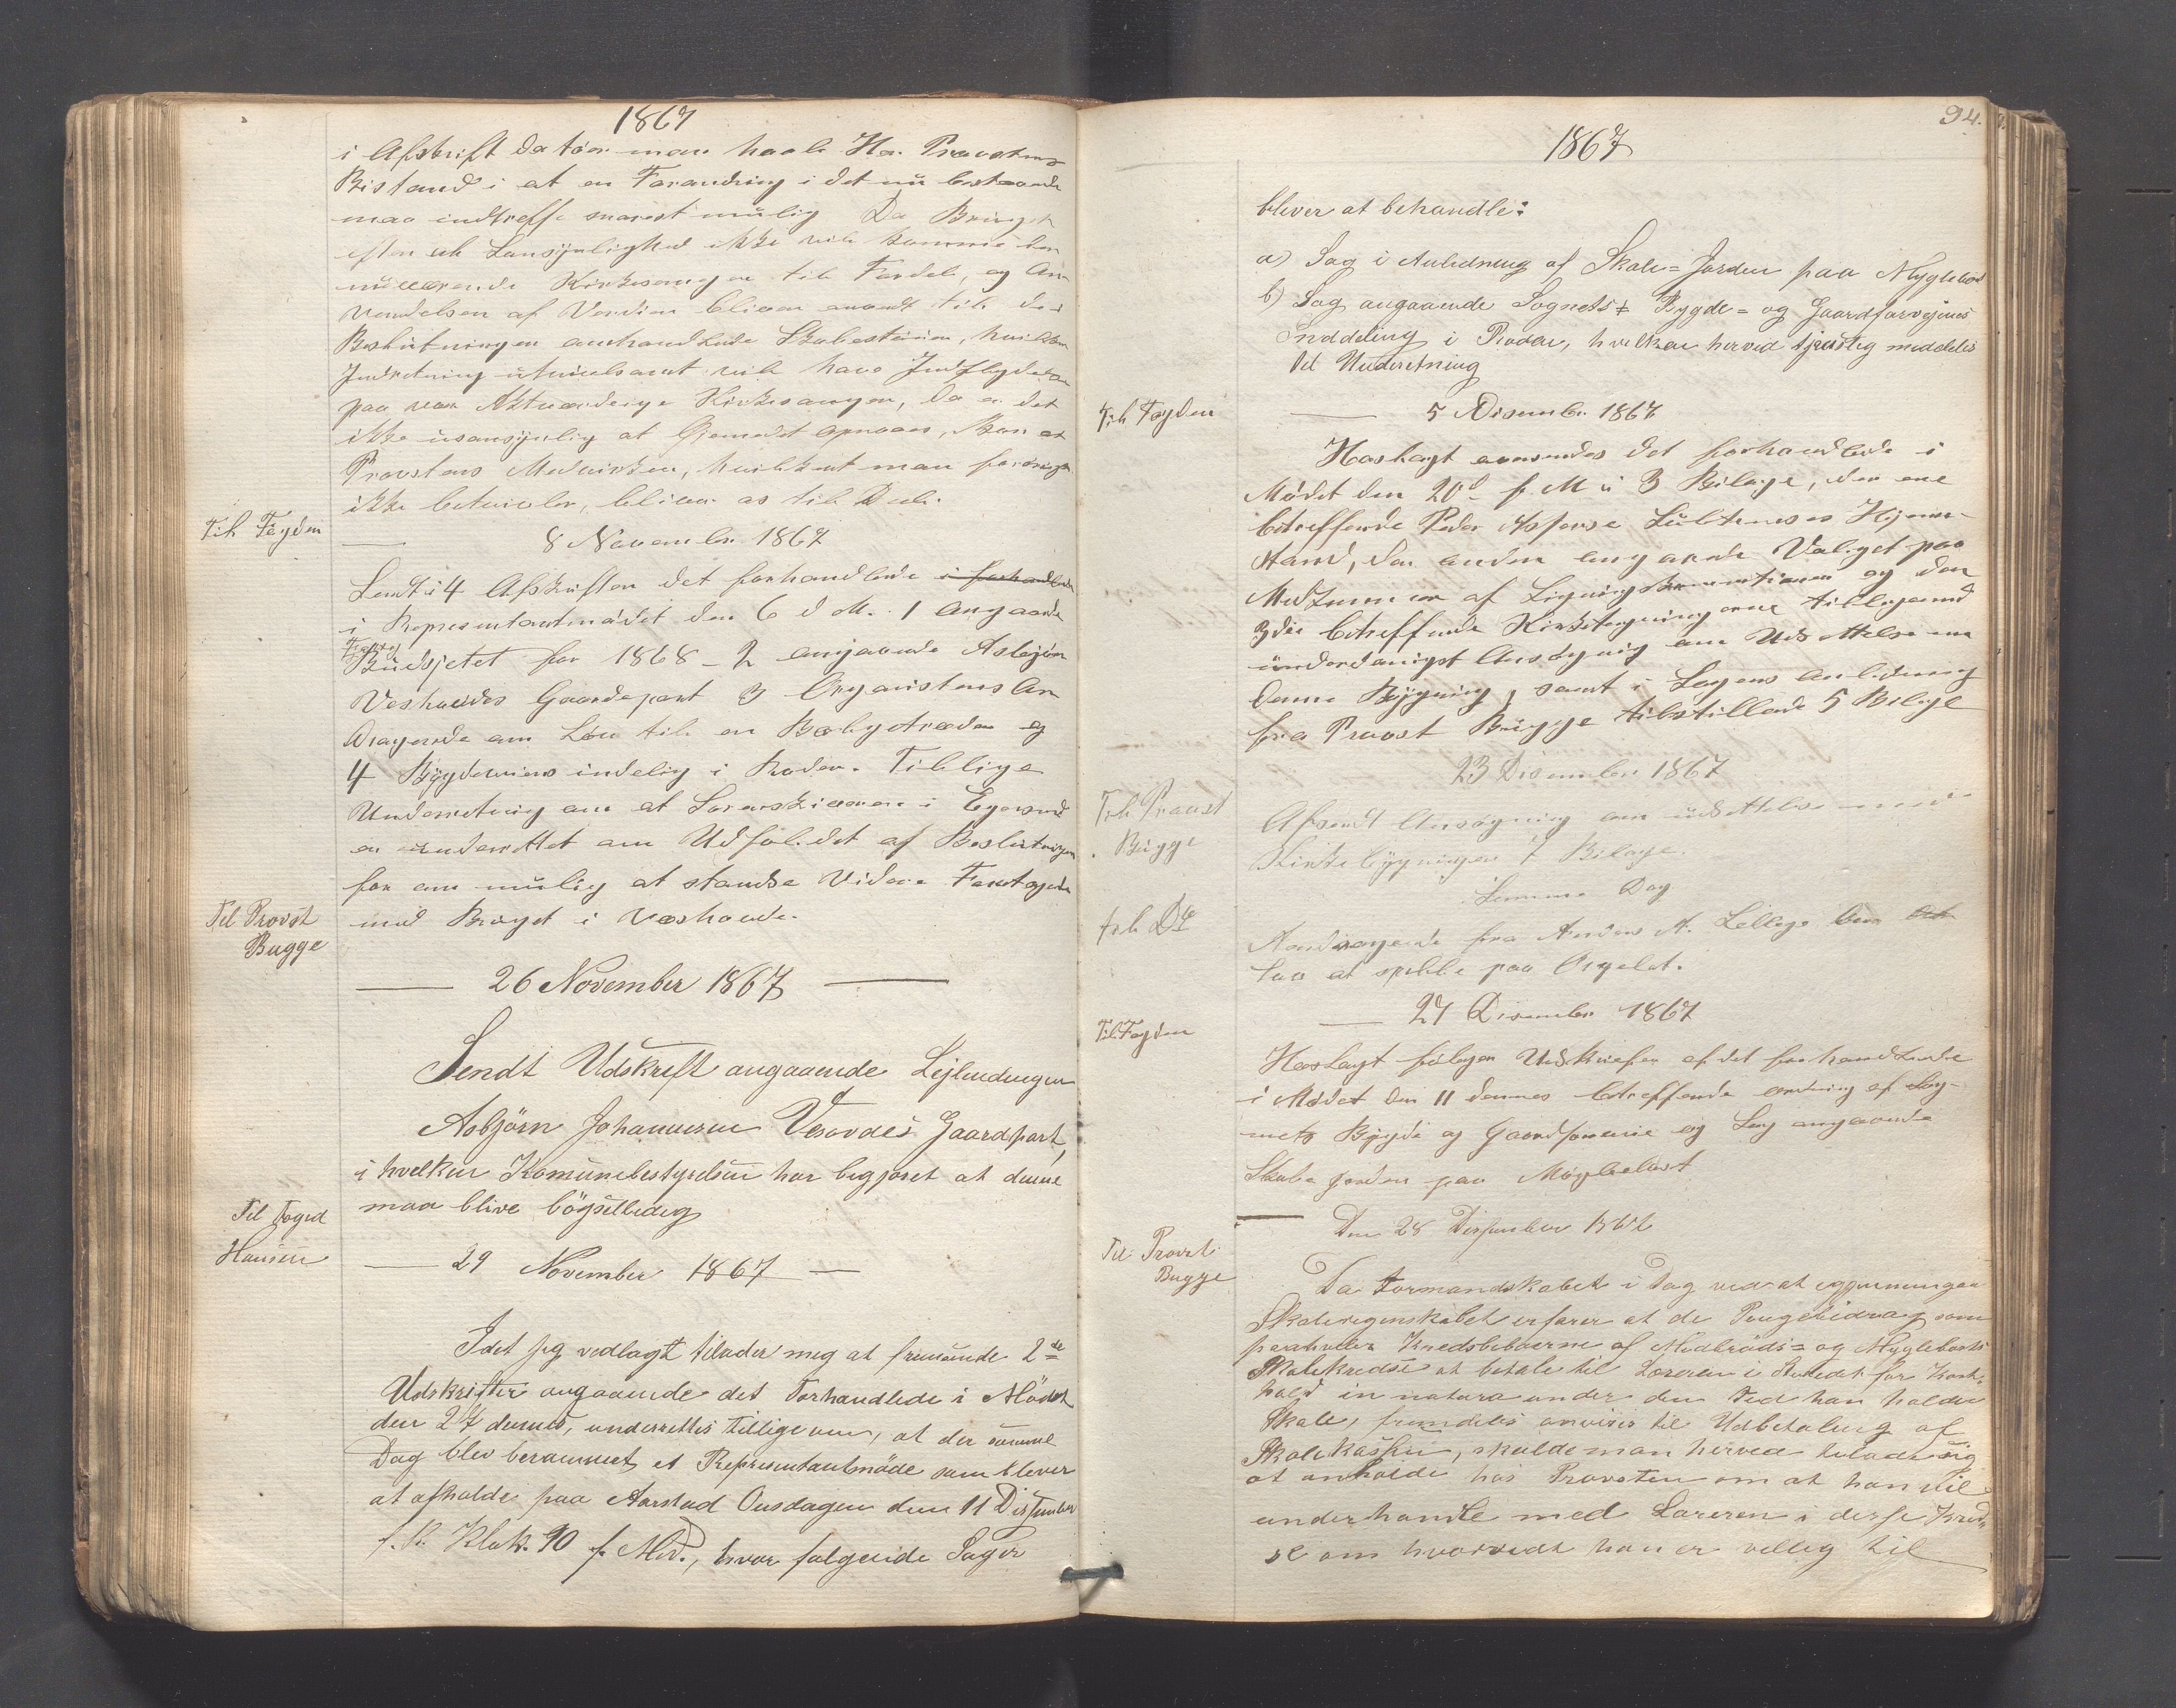 1867
i Afskrift da tör man haabe Hr. Provstens
Bistand i at en Forandring i det nu bestaaende
maa indtreffe snarest mulig Da Bringet
efter al Sansynlighed ikke vil komme den
nuværende Kirkesanger til Fordel, og An-
vendelsen af Verdien bliver anvendt til de i
Beslutningen omhandlede Skolestuer, hvilken
Indretning utvivlsomt vil have Indflydelse
paa vor Nuværende Kirkesanger, da er det
ikke usansynlig at Öiemedet opnaaes, kun at
Provstens Medvirken, hvilket man forövrigt
ikke betvivler, bliver os til Deel.
Til Fogden
8 November 1867
Sendt i 4 Afskrifter det forhandlede i forhandlede
i Representantmödet den 6 d M. 1 angaaende
Büdsjetet for 1868 - 2 angaaende Asbjön
Veshovdes Gaardspart 3 Organistens An
dragende om Lön til en Belgetræder og
4 Bygdeveiens indeling i Roder. Tillige
Underretning om at Sorenskiveren i Egersund
er underrettet om Udfaldet af Beslutningen
for om mulig at standse Videre Foretagende
med Bruget i Veshovde.
Til Provst
Bugge
26 November 1867
Sendt Udskreft angaaende Lejlendingen
Asbjörn Johannesen Vesovdes Gaardpart,
i hvelken Komunebestyrelsen har begjæret at denne
maa blive bögselledig
Til Foged
Hansen
29 November 1867
Idet jeg vedlagt tilader meg at fremsende 2de
Udskrifter angaaende det Forhandlede i Mödet
den 27 dennes, underrettes tillige om, at der samme
Dag blev berammet et Representantmöde som blever
at afholde paa Aarstad Onsdagen den 11 Disember
f. K. Klok. 10 f. Md., hvor følgende Sager
94.
1867
blever at behandle:
a) Sag i Anledning af Skole=Jorden paa Myglebost
b) Sag angaaende Sognets Bygde= og Gaardforvejenes
Inddeling i Roder, hvelken herved tjenstlig meddeles
til Underretning
Til Fogden
5 Disember 1867
Hoslagt oversendes det forhandlede i
Mödet den 20d f. M i 3 Bilage, den ene
betreffende Peder Asperöe Hjem-
stand, den anden angaaende Valget paa
Medlemmer af Ligningskommitionen og den
3die betreffende Kirketegningerne tilligemed
underdanigst Ansögning om Udsettelse med
denne Bygning, samt i Sagens anledning
fra Provst Bugge tilstillede 5 Bilage
Til Provst
Bugge
23 Disember 1867
Afsendt Ansögning om udsettelse med
Kirke bygningen 7 Bilage.
til Do
Samme Dag
Andragende fra Anders A. om
Lov at spille paa Orgelet.
Til Fogden
27 Disember 1867
Hoslagt fölger Udskrifter af det forhandlede
i Mödet den 11 dennes betreffende ordning af Sog-
nets Bygde og Gaardforveie og Sag angaaende
Skole jorden paa Myglebost
Til Provst
Bugge
Den 28 Disember 1867
Da Formandskabet i Dag ved at eggjennemgaa
Skoleregenskabet erfarer at de Pengebidrag som
Kredsbeboerne af Medbröds= og Myglebosts
Skolekredse at betale til Læreren i Stedet for Kost-
hold in natura under den Tid han holder
Skole, fremdeles anvises til Udbetaling af
Skolekassen, skulde man herved tilade sig
at anholde hos Provsten om at han vil
underhandle med Læreren i desse Kred-
se om hvorvidt han er velleg til